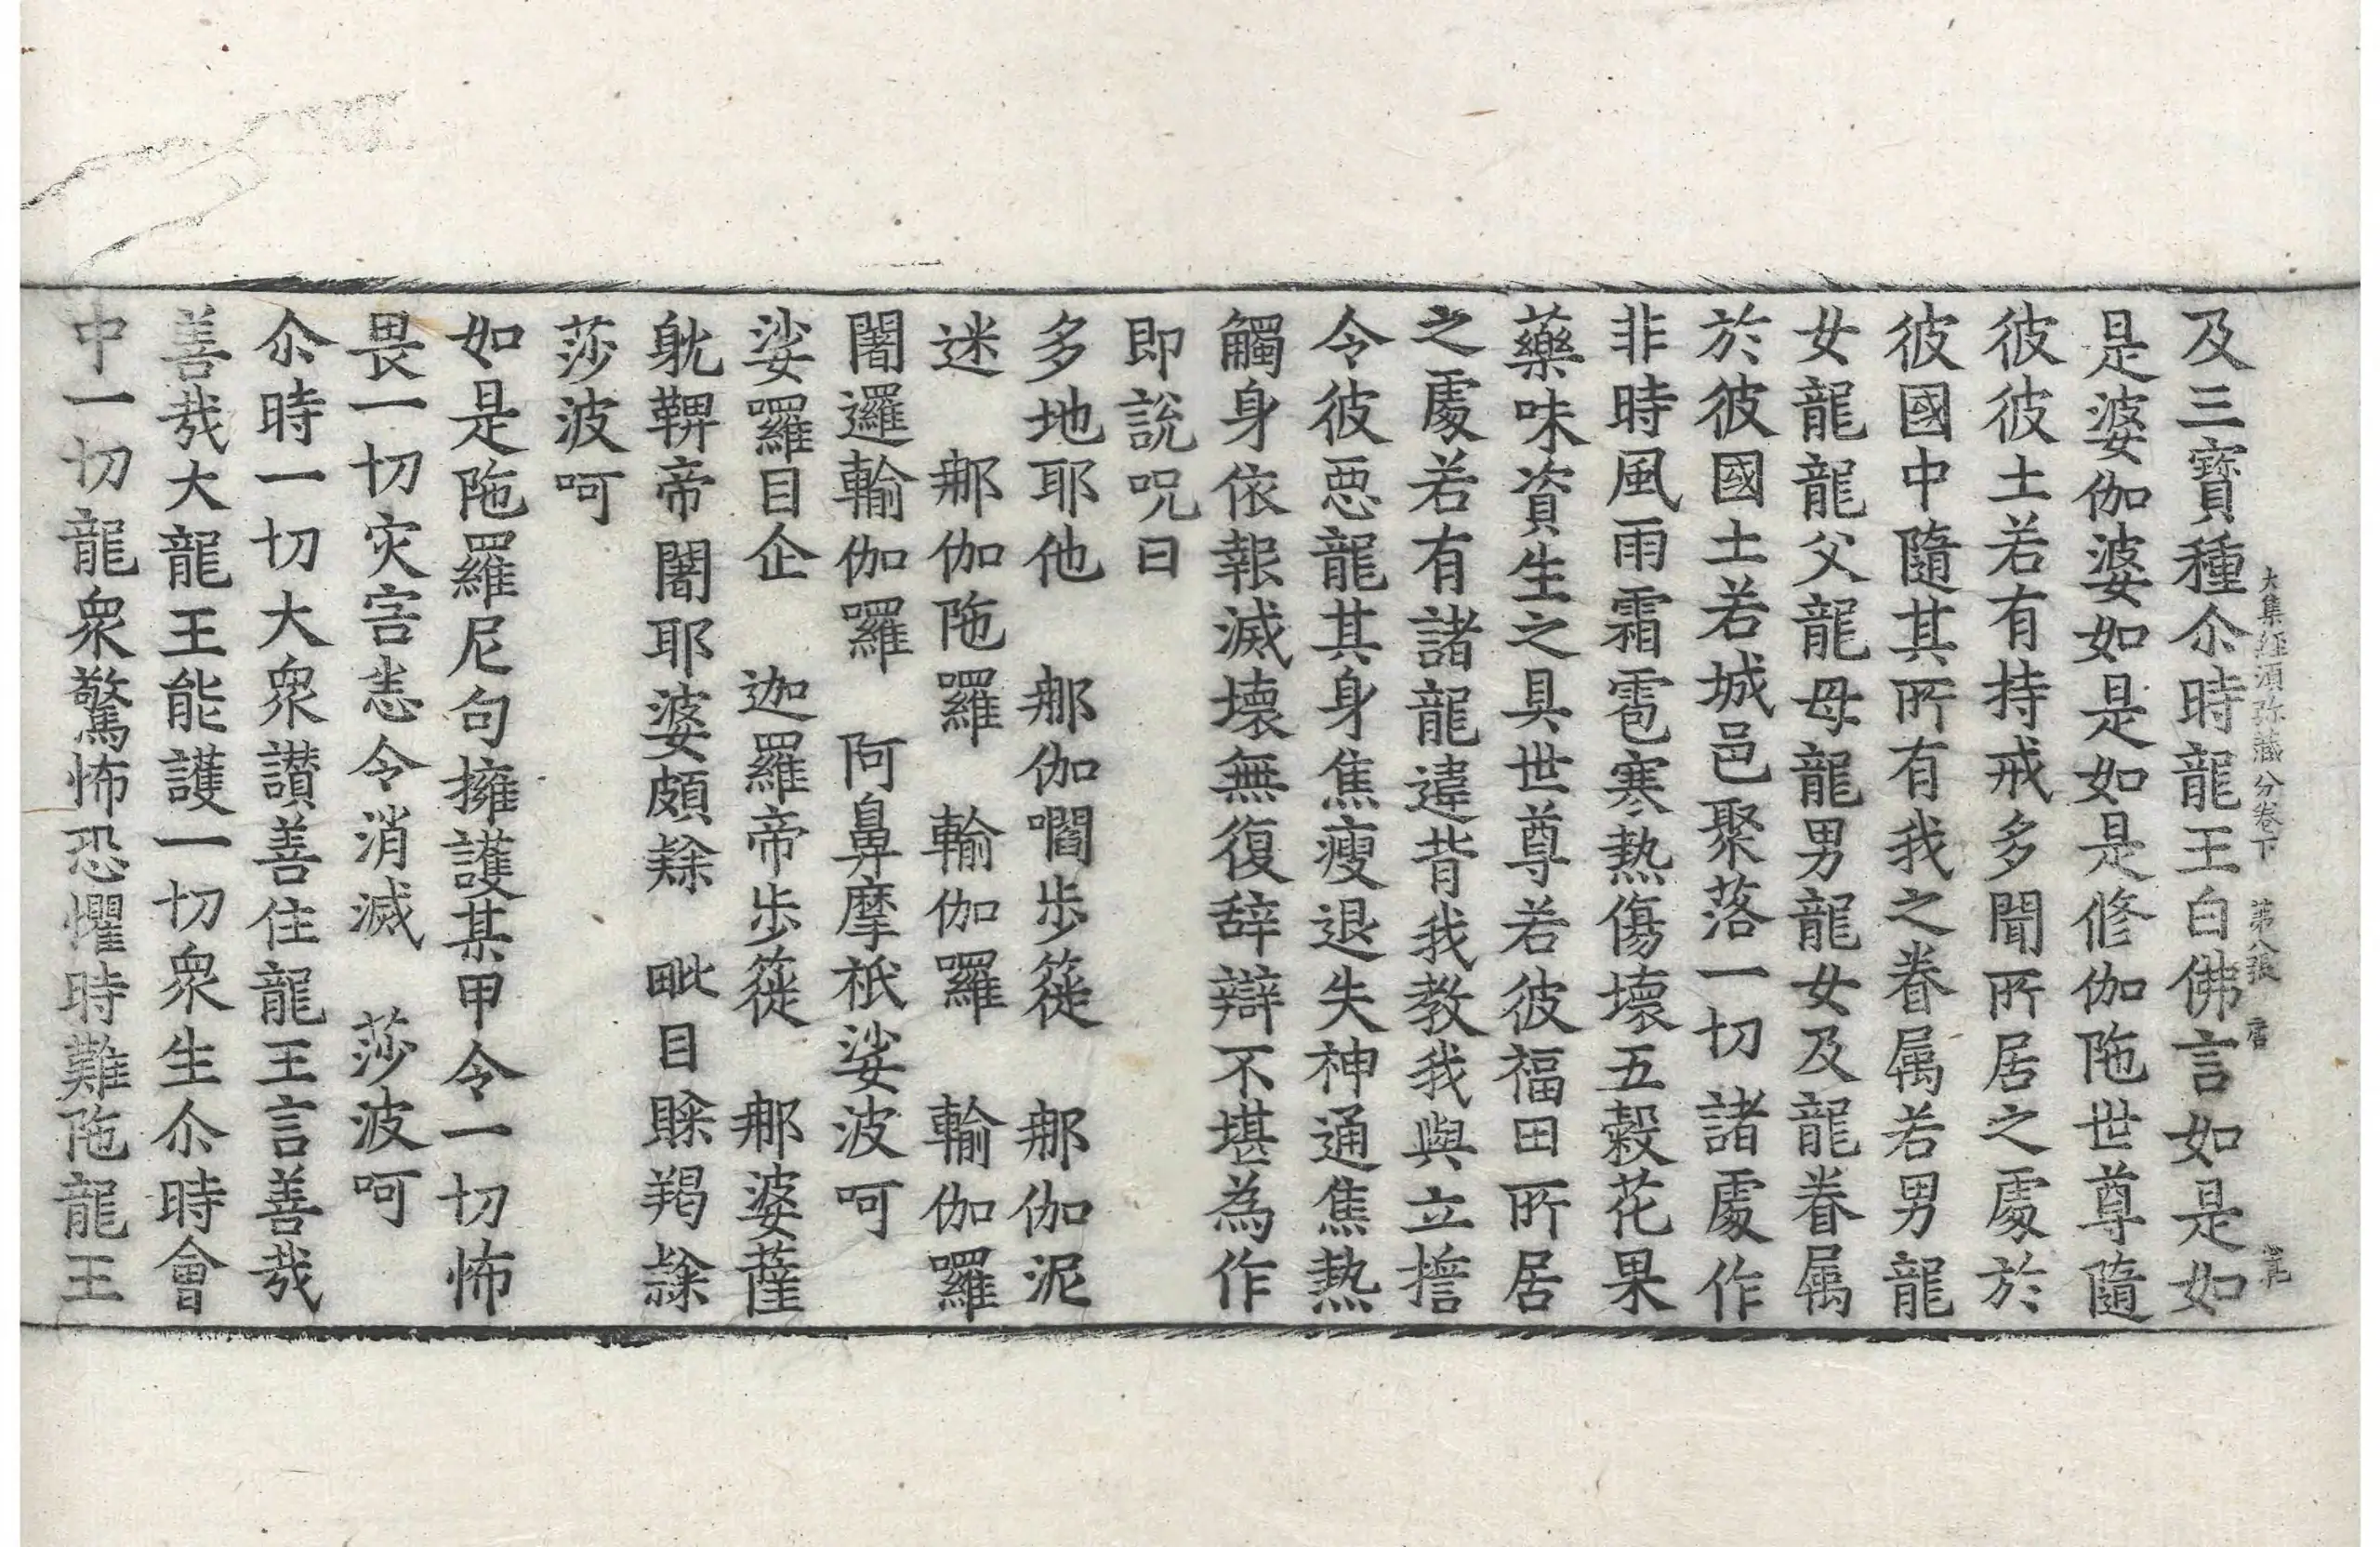 大集經須弥藏分卷下 第八張
及三寳種尒時龍王白佛言如是如
是婆伽婆如是如是修伽陁世尊隨
彼彼土若有持戒多聞所居之處於
彼國中隨其所有我之眷属若男龍
女龍龍父龍母龍男龍女及龍眷属
於彼國土若城邑聚落一切諸處作
非時風雨霜雹寒熱傷壞五穀花果
藥味資生之具世尊若彼福田所居
之處若有諸龍違背我教我與立擔
令彼惡龍其身焦瘦退失神通焦熱
觸身依報滅壞無復辞辯不堪為作
即說呪曰
多地耶他 那伽嚪步簁 那伽泥
迷 那伽陁羅 輸伽囉 輸伽囉
闍邏輸伽囉 阿鼻摩袛娑波呵
娑囉目企 迦羅帝步簁 那婆薩
躭鞞帝闍耶婆頗 毗目羯
莎波呵
如是陁羅尼句擁護某甲令一切怖
畏一切灾害恙令消滅 莎波呵
尒時一切大衆讃善住龍王言善哉
善哉大龍王能護一切衆生尒時會
中一切龍衆驚怖恐懼時難陁龍王